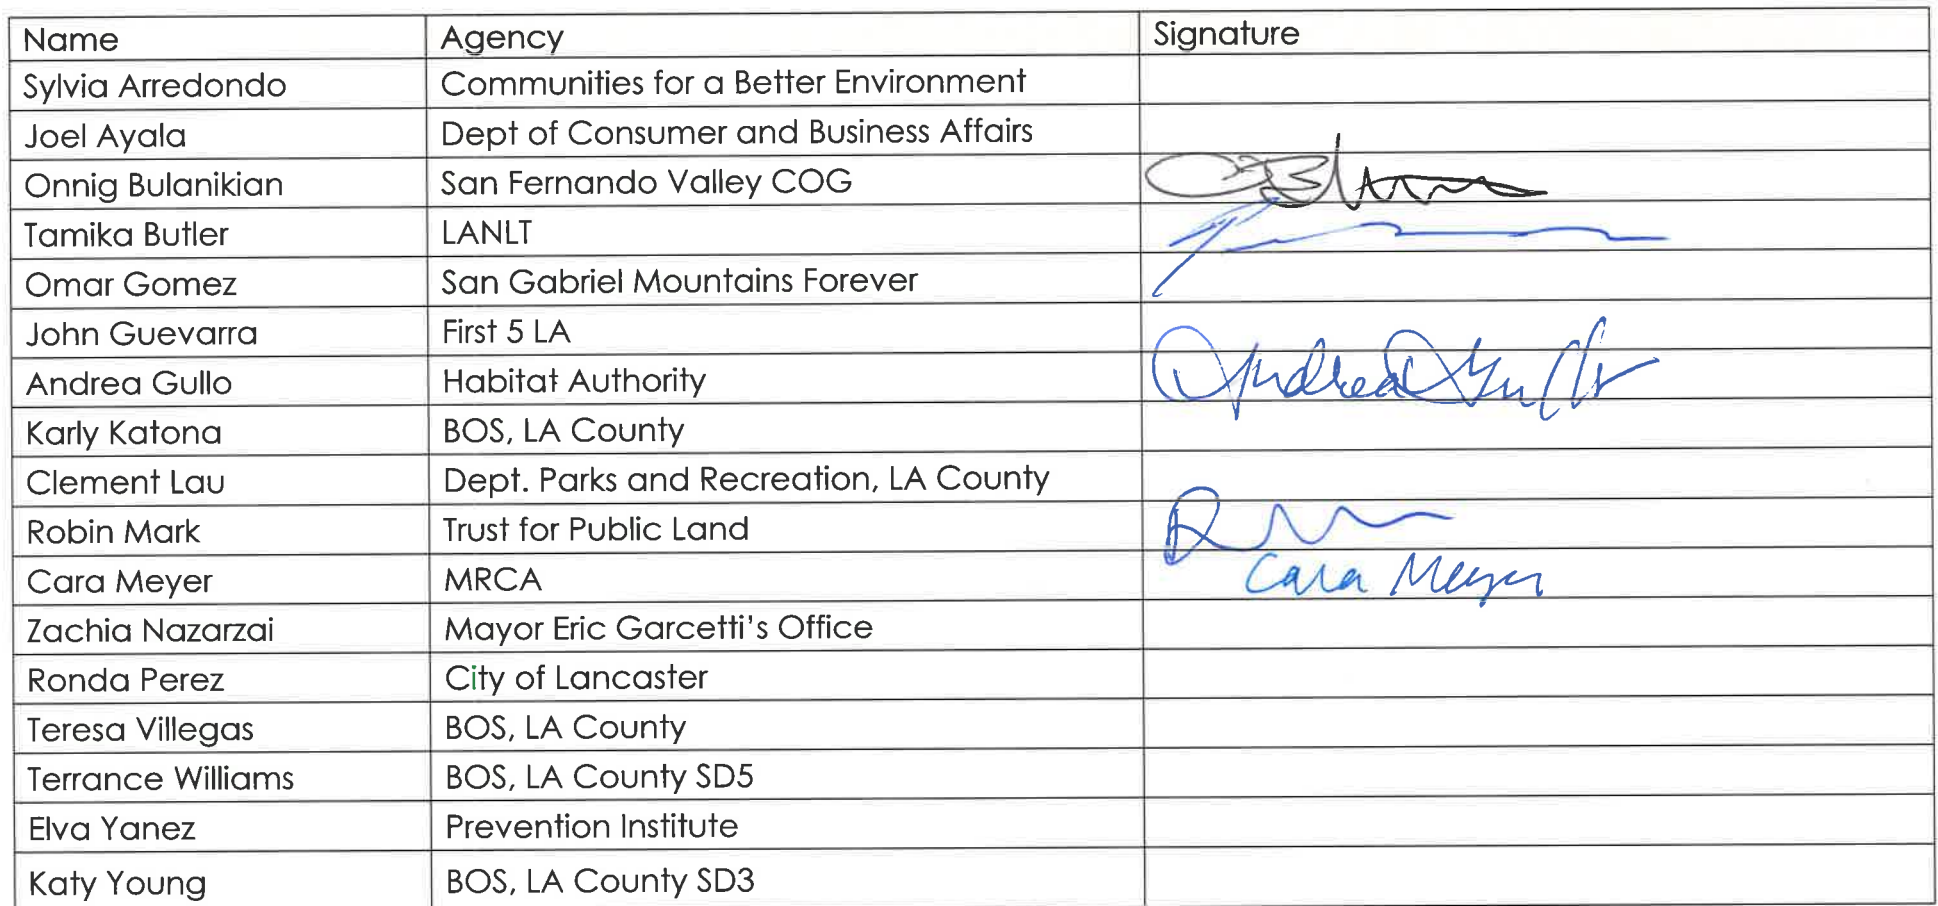 Name Agency Signature
Sylvia Arredondo Communities for a Better Environment
Joel Ayala Dept of Consumer and Business Affairs
Onnig Bulanikian San Fernando Valley COG
Tamika Butler LANLT
Omar Gomez San Gabriel Mountains Forever
John Guevarra First 5 LA
Andrea Gullo Habitat Authority Andrea Gullo
Karly Katona BOS, LA County
Clement Lau Dept. Parks and Recreation, LA County
Robin Mark Trust for Public Land
Cara Meyer MRCA Cara Meyer
Zachia Nazarzai Mayor Eric Garcetti's Office
Ronda Perez City of Lancaster
Teresa Villegas BOS, LA County
Terrance Williams BOS, LA County SD5
Elva Yanez Prevention Institute
Katy Young BOS, LA County SD3